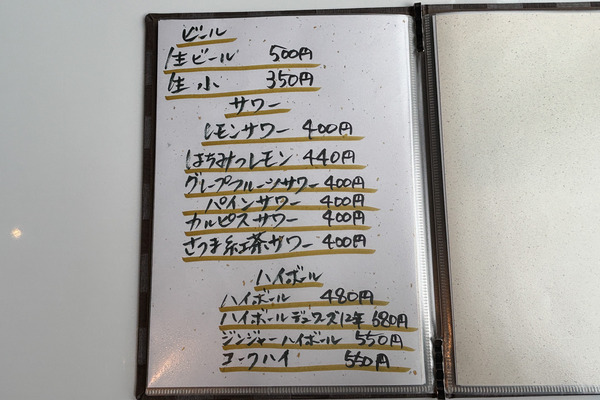 ビール
生ビール 500円
生小 350円
サワー
レモンサワー 400円
はちみつレモン 440円
グレープフルーツサワー 400円
パインサワー 400円
カルピスサワー 400円
さつま紅茶サワー 400円
ハイボール
ハイボール 480円
ハイボールデュワーズ12年 680円
ジンジャーハイボール 550円
コークハイ 550円